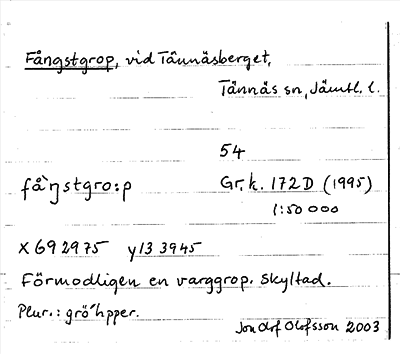 Fångstgrop, vid Tännäsberget,
Tännäs sn, Jämtl. l.
54
få`ŋstgro:p Gr. k. 172D (1995)
1:50 000
x 692975 y 133945
Förmodligen en varggrop. Skyltad.
Plur.: grö´hpper.
Jon Olof Olofsson 2003